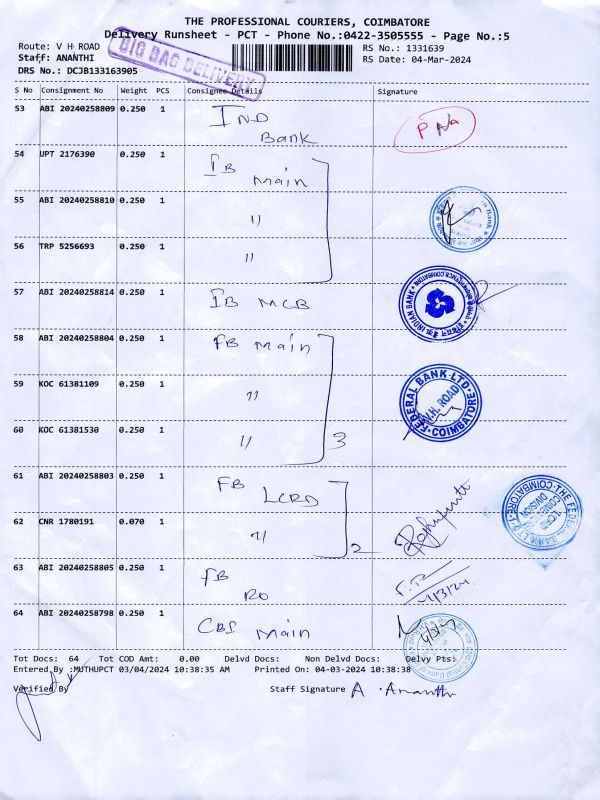 THE PROFESSIONAL COURIERS, COIMBATORE
Delivery Runsheet - PCT - Phone No.:0422-3505555 - Page No.:5
Route: V H ROAD
RS No.: 1331639
Staff: ANANTHI
RS Date: 04-Mar-2024
DRS No.: DCJB133163905
BIG BAG DELIVERY
S No Consignment No Weight PCS Consignee Details Signature
53 ABI 20240258809 0.250 1 IND Bank
54 UPT 2176390 0.250 1 IB Main
55 ABI 20240258810 0.250 1 "
56 TRP 5256693 0.250 1 "
57 ABI 20240258814 0.250 1 IB MCB
INDIAN BANK
58 ABI 20240258804 0.250 1 FB Main
59 KOC 61381109 0.250 1 "
FEDERAL BANK LTD.
V.H. ROAD
COIMBATORE
60 KOC 61381530 0.250 1 " 3
61 ABI 20240258803 0.250 1 FB LCRD
62 CNR 1780191 0.070 1 " 2
63 ABI 20240258805 0.250 1 FB RO
64 ABI 20240258798 0.250 1 CBI Main
Tot Docs: 64 Tot COD Amt: 0.00 Delvd Docs: Non Delvd Docs: Delvy Pts:
Entered By :MUTHUPCT 03/04/2024 10:38:35 AM Printed On: 04-03-2024 10:38:38
Verified By
Staff Signature A. Ananthi